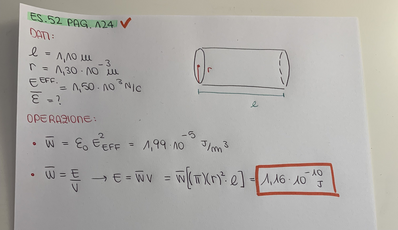 ES. 52 PAG. 124 ✓
DATI:
l = 1,10 m
r = 1,30 · 10⁻³ m
E^EFF. = 1,50 · 10³ N/C
E̅ = ?
r
l
OPERAZIONE:
• W̅ = ε₀ E²_EFF = 1,99 · 10⁻⁵ J/m³
• W̅ = E/V → E = W̅ V = W̅ [(π)(r)² · l] = 1,16 · 10⁻¹⁰ J